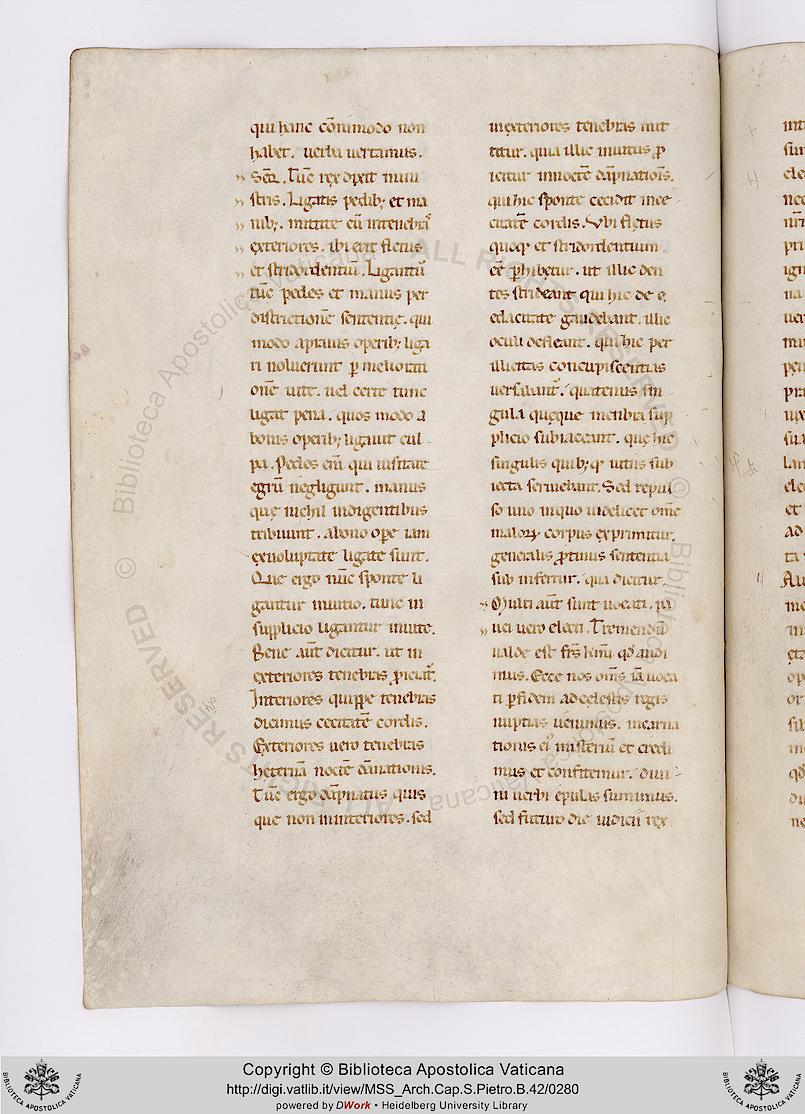 qui hanc cōmmodo non
habet. uerba uertamus.
Seq̄. Tūc rex dixit mini
stris. Ligatis pedib; et ma
nib;. mittite eū intenebrꝭ
exteriores. ibi erit fletus
et stridordentiū. Ligantᷣ
tūc pedes et manus per
districtionē sententię. qui
modo aprauis operib; liga
ri noluerunt ꝑ meliorati
onē uitę. uel certe tunc
ligat pena. quos modo a
bonis operib; ligauit cul
pa. Pedes eni qui uisitare
egrū negligunt. manus
quę nichil indigentibus
tribuunt. abono oꝑe iam
exuoluptate ligate sunt.
Que ergo nūc sponte li
gantur inuitio. tunc in
supplicio ligantur inuite.
Bene aūt dicitur. ut in
exteriores tenebras ꝓiciatᷣ.
Interiores quippe tenebras
dicimus cecitatē cordis.
Exteriores uero tenebras
hęternā noctē dānationis.
Tūc ergo dāpnatus quis
que non ininteriores. sed
inexteriores tenebras mit
titur. quia illic inuitus ꝓ
icitur innoctē dāpnationis.
qui hic sponte cecidit ince
citatē cordis. Vbi fletus
quoq; et stridordentium
eē ꝑhibetur. ut illic den
tes strideant qui hic de e
edacitate gaudebant. illic
oculi defleant. qui hic per
illicitas concupiscentias
uersabantᷣ. quatenus sin
gula quęque menbra sup
plicio subiaceant. quę hic
singulis quib; q; uitiis sub
iecta seruiebant. Sed repul
so uno inquo uidelicet om̄e
maloꝝ corpus exprimitur.
generalis ꝓtinus sententia
sub infertur. qua dicitur.
Multi aūt sunt uocati. pa
uci uero electi. Tremendū
ualde est frs̄ kmi. qd̄ audi
mus. Ecce nos om̄s iā uoca
ti ꝑ fidem adcelestis regis
nuptias uenimus. incarna
tionis eiꝰ misteriū et credi
mus et confitemur. diui
ni uerbi epulas sumimus.
sed futuro die iudicii rex
Copyright © Biblioteca Apostolica Vaticana
http://digi.vatlib.it/view/MSS_Arch.Cap.S.Pietro.B.42/0280
powered by DWork • Heidelberg University Library